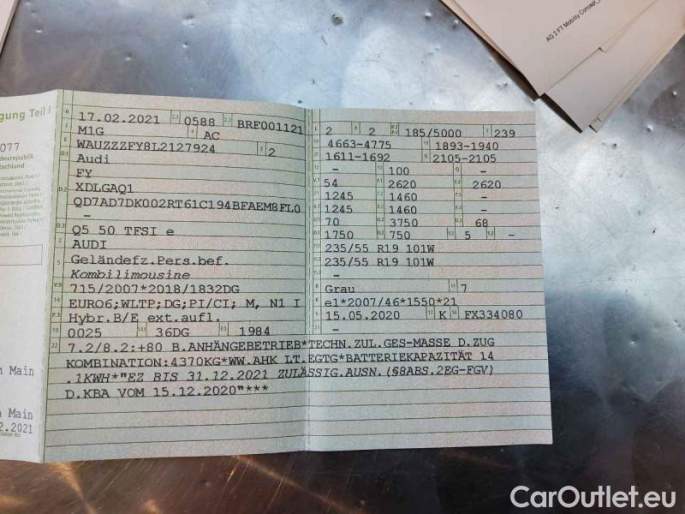 AQ 3 FT Mobility Concept
gung Teil I
077
17.02.2021 0588 BRF001121
M1G AC
WAUZZZFY8L2127924 2
Audi
FY
XDLGAQ1
QD7AD7DK002RT61C194BFAEM8FL0
-
Q5 50 TFSI e
AUDI
Geländefz.Pers.bef.
Kombilimousine
715/2007*2018/1832DG
EURO6;WLTP;DG;PI/CI; M, N1 I
Hybr.B/E ext.aufl.
0025 36DG 1984
2 2 185/5000 239
4663-4775 1893-1940
1611-1692 2105-2105
- 100 -
54 2620 2620
1245 1460 -
1245 1460 -
70 3750 68
1750 750 5 -
235/55 R19 101W
235/55 R19 101W
-
Grau 7
e1*2007/46*1550*21
15.05.2020 K FX334080
-
7.2/8.2:+80 B.ANHÄNGEBETRIEB*TECHN.ZUL.GES-MASSE D.ZUG
KOMBINATION:4370KG*WW.AHK LT.EGTG*BATTERIEKAPAZITÄT 14
.1KWH*"EZ BIS 31.12.2021 ZULÄSSIG.AUSN.(§8ABS.2EG-FGV)
D.KBA VOM 15.12.2020"***
Main
Main
2.2021
CarOutlet.eu